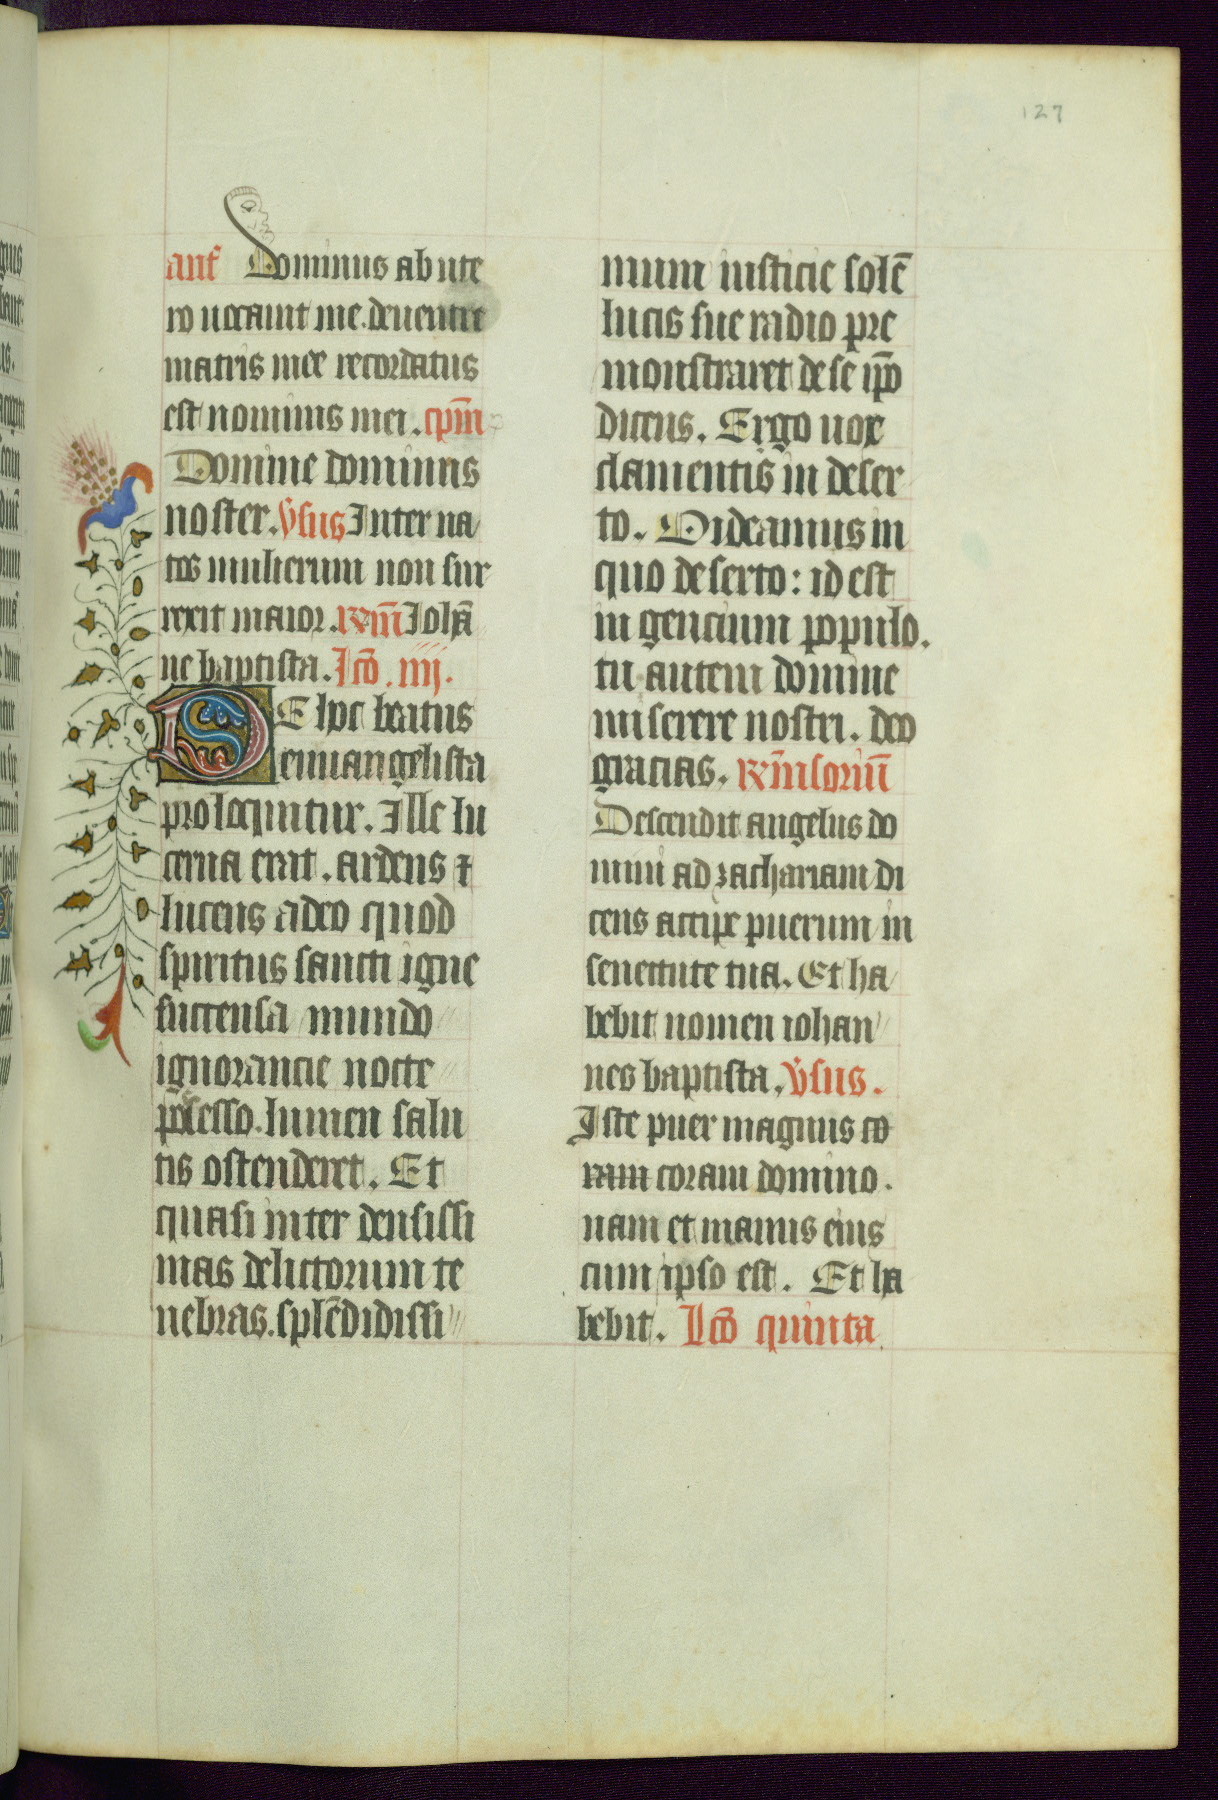 127
anſ Dominus ab ute
ro uocauit me. de uentre
matris mee recordatus
est nominis mei. cpm̄
Domine dominus
noster. v̄sus Inter na
tos mulierum non sur
rexit maior. rm̄ Iohā
ne baptista. Lcō. iiij.
DE hoc beatus
euuangelista
proloquitur. Ille lu
cerna erat. ardens ⁊
lucens adeo quod
spiritus sancti igne
succensa mundo
ignorancie nocte
possesso. lumen salu
tis ostenderet. Et
quasi inter densissi
mas delictorum te
nebras. splēdidissi
mum iusticie solē
lucis sue radio pre
monstraret de se ip̄o
dicens. Ergo uox
clamentis in deser
to. Uideamus in
quo deserto: id est
in gencium populo.
tu autem domine
miserere nostri. deo
gracias. rn̄soriū
Descendit angelus do
mini ad zachariam di
cens accipe puerum in
senectute tua. Et ha
bebit nomen iohan
nes baptista. v̄sus.
Iste puer magnus co
ram coram domino.
nam et manus eius
cum ipso est. Et ha
bebit. Lcō quinta